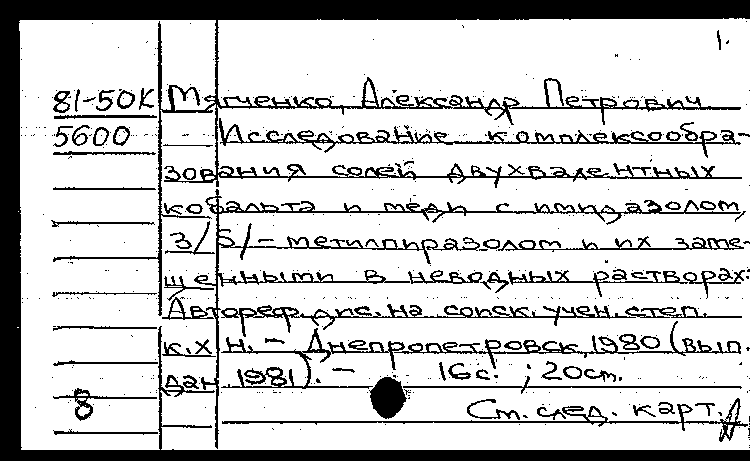 1.
81-50К Мягченко, Александр Петрович
5600 Исследование комплексообра-
зования солей двухвалентных
кобальта и меди с имидазолом,
3/5/-метилпиразолом и их заме-
щенными в неводных растворах:
Автореф. дис. на соиск. учен. степ.
к.х.н. - Днепропетровск, 1980 (вып.
дан 1981). - 16с. ; 20см.
8 См. след. карт.